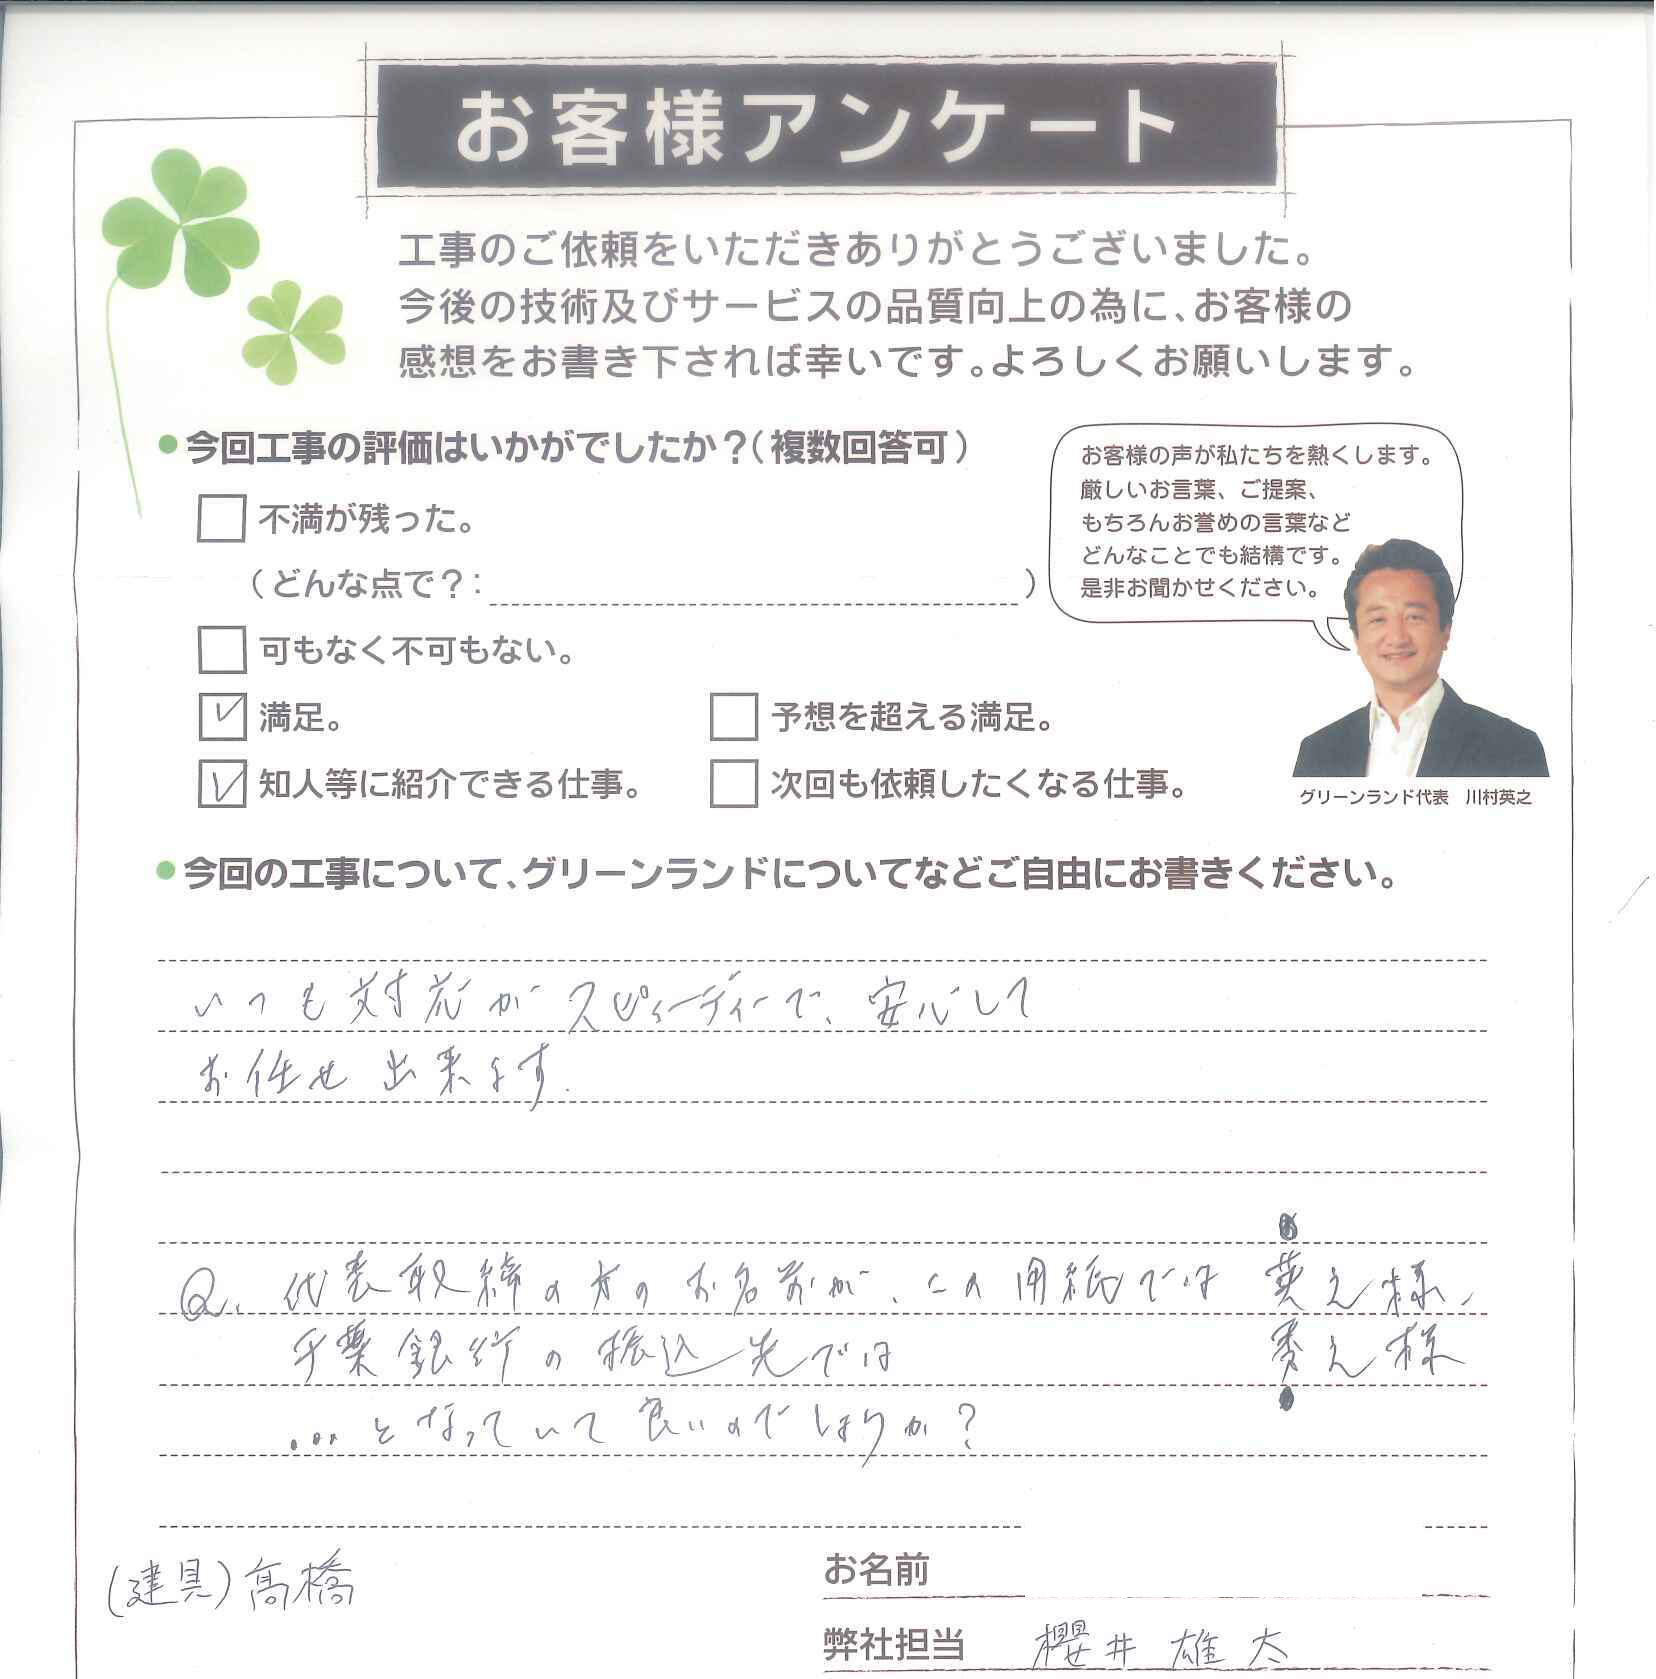 お客様アンケート
工事のご依頼をいただきありがとうございました。
今後の技術及びサービスの品質向上の為に、お客様の
感想をお書き下されば幸いです。よろしくお願いします。
●今回工事の評価はいかがでしたか？（複数回答可）
不満が残った。
（どんな点で？：　）
可もなく不可もない。
満足。
予想を超える満足。
知人等に紹介できる仕事。
次回も依頼したくなる仕事。
お客様の声が私たちを熱くします。
厳しいお言葉、ご提案、
もちろんお誉めの言葉など
どんなことでも結構です。
是非お聞かせください。
グリーンランド代表　川村英之
●今回の工事について、グリーンランドについてなどご自由にお書きください。
いつも対応がスピーディーで、安心して
お任せ出来ます.
Q. 代表取締の方のお名前が、この用紙では 英之様、
千葉銀行の振込先では 秀之様
...となっていて良いのでしょうか？
(建具)髙橋
お名前
弊社担当 櫻井 雄太